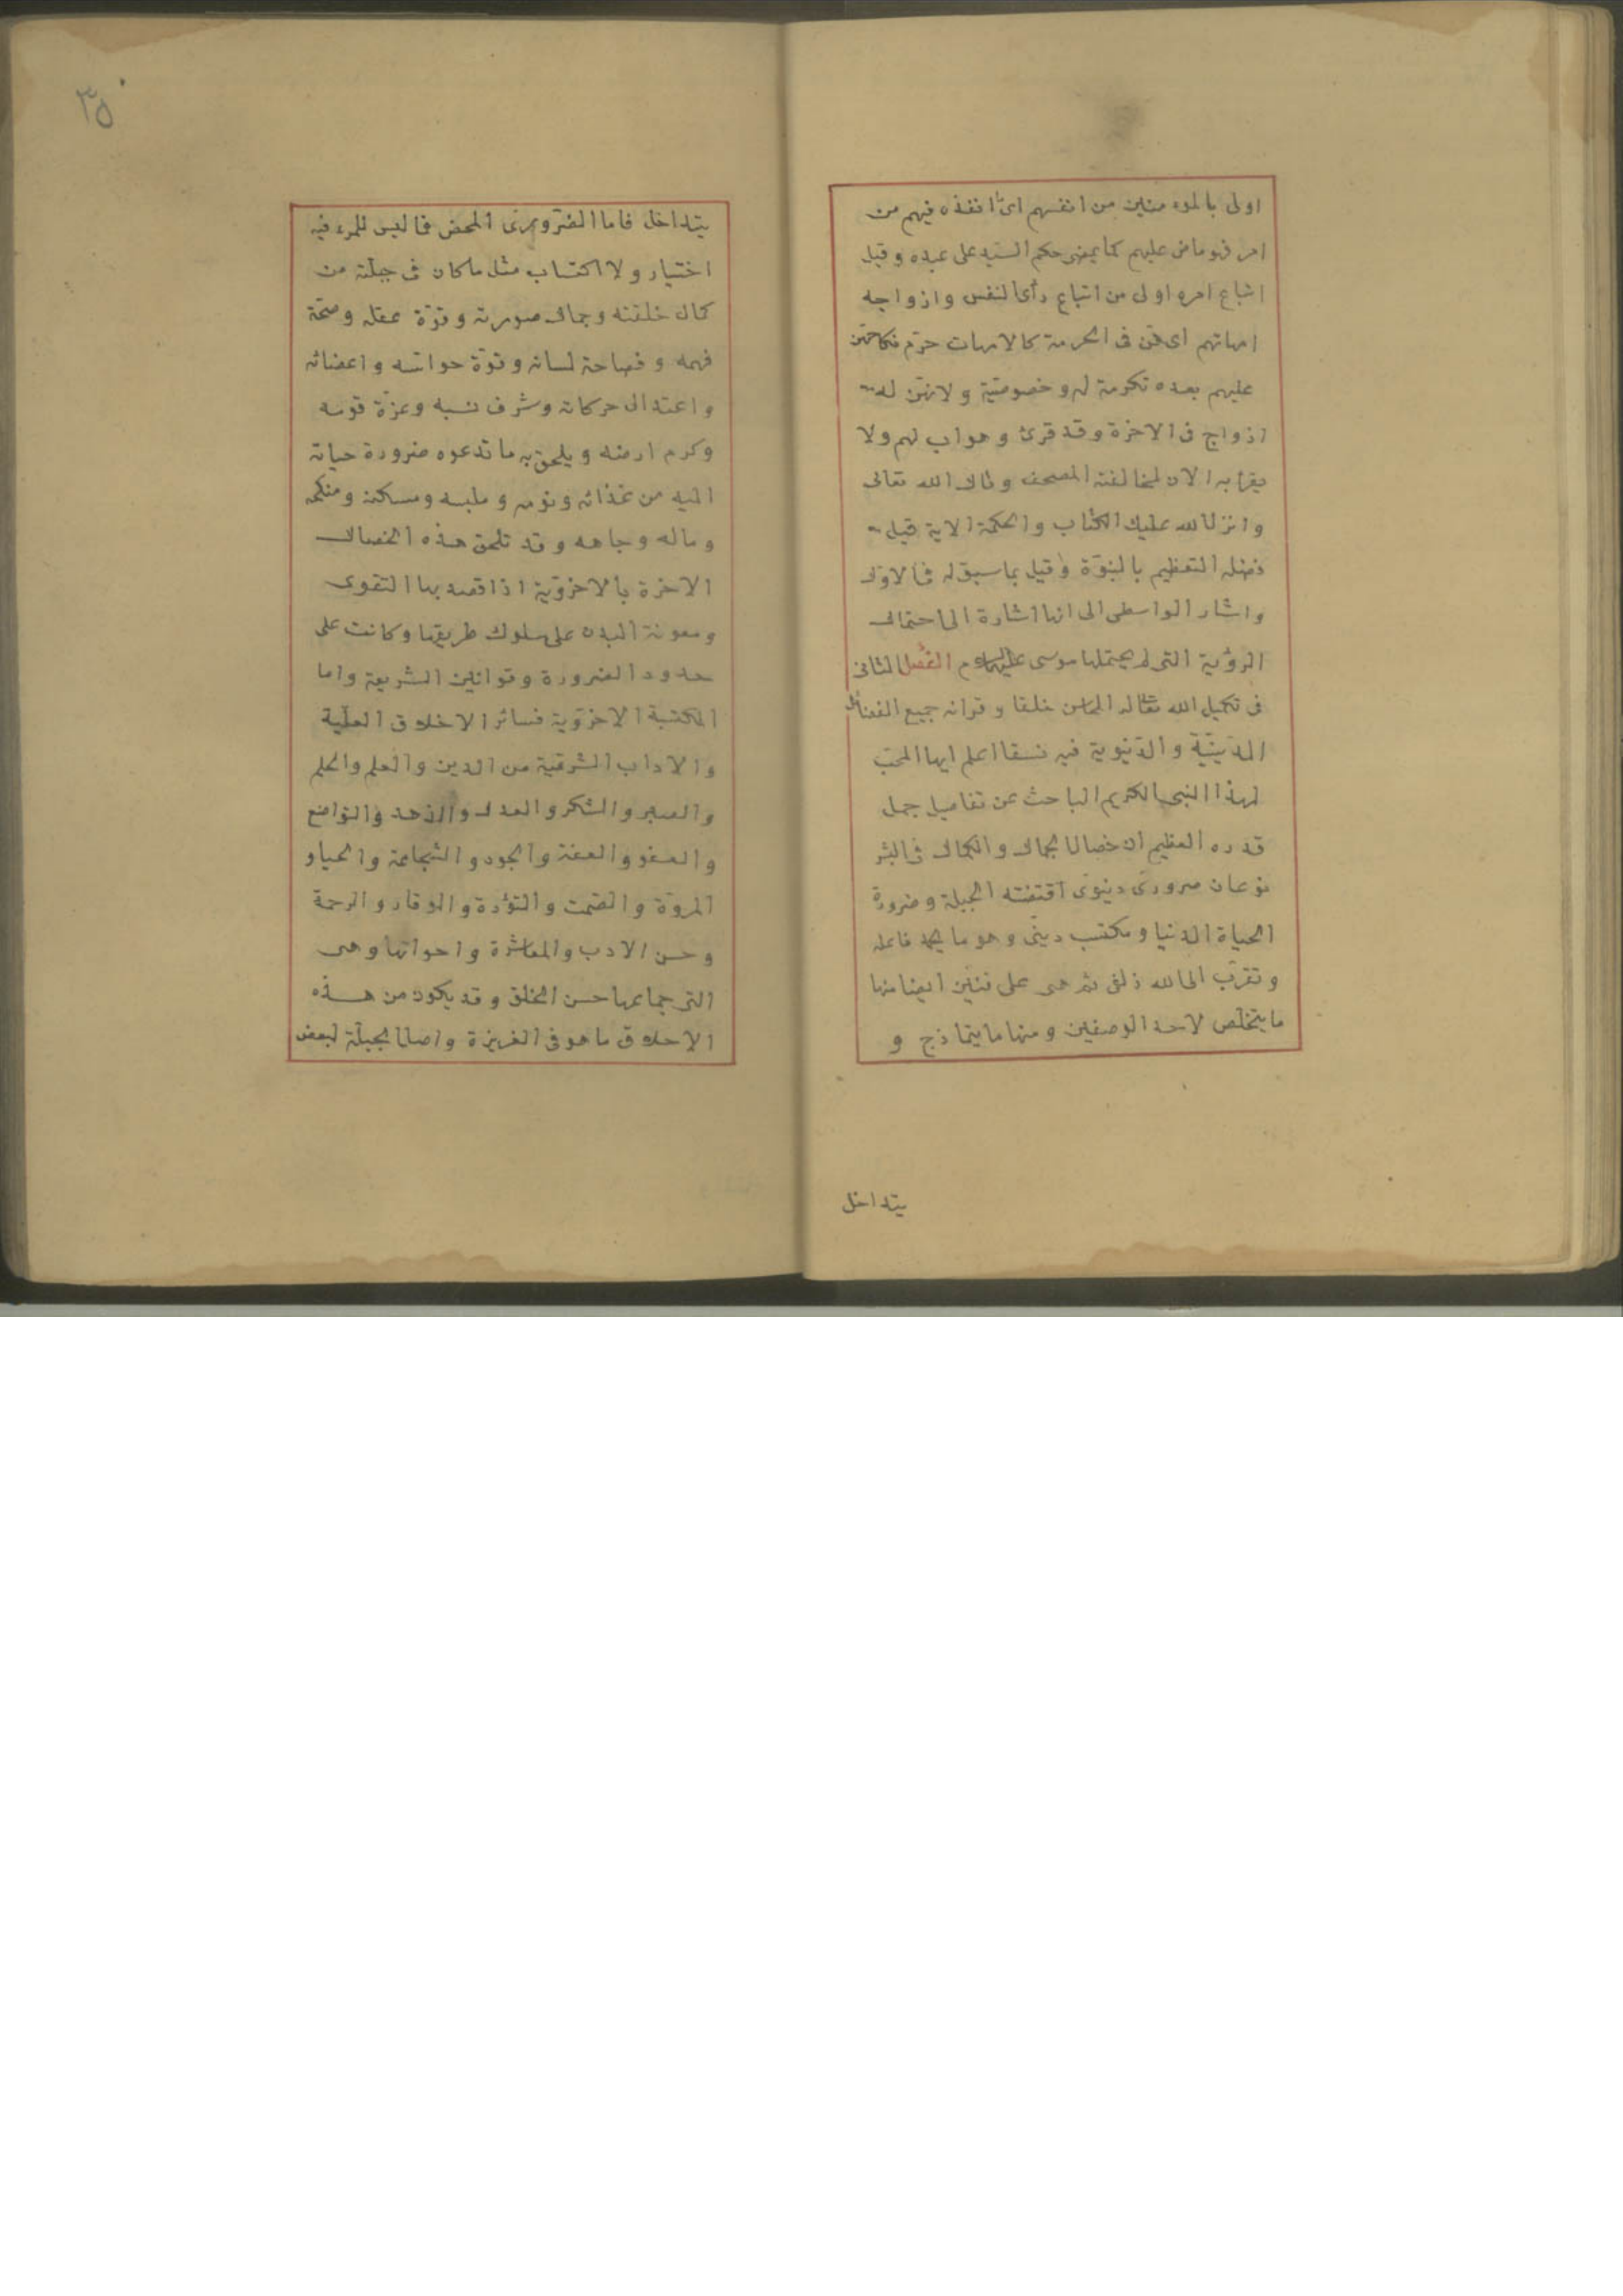 اولى بالمؤمنين من انفسهم اى ما انفذه فيهم من
امر فهو ماض عليهم كما يمضى حكم السيد على عبده وقيل
اتباع امره اولى من اتباع رأى النفس وازواجه
امهاتهم اى هن فى الحرمة كالامهات حرم نكاحهن
عليهم بعده تكرمة له وخصوصية ولانهن له
ازواج فى الاخرة وقد قرئ وهو اب لهم ولا
يقرأ به الان لمخالفته المصحف وقال الله تعالى
وانزل الله عليك الكتاب والحكمة الاية قيل
فضله العظيم بالنبوة وقيل بما سبق له فى الازل
واشار الواسطى الى انها اشارة الى احتمال
الرؤية التى لم يحتملها موسى عليه السلام الفصل الثانى
فى تكميل الله تعالى له المحاسن خلقا وقرانه جميع الفضائل
الدينية والدنيوية فيه نسقا اعلم ايها المحب
لهذا النبى الكريم الباحث عن تفاصيل جمل
قدره العظيم ان خصال الجمال والكمال فى البشر
نوعان ضرورى دنيوى اقتضته الجبلة وضرورة
الحياة الدنيا ومكتسب دينى وهو ما يحمد فاعله
وتقرب الى الله زلفى ثم هى على فنين ايضا منها
ما يتخلص لاحد الوصفين ومنها ما يتمازج و
يتداخل
٣٥
يتداخل فاما الضرورى المحض فما ليس للمرء فيه
اختيار ولا اكتساب مثل ما كان فى جبلته من
كمال خلقته وجمال صورته وقوة عقله وصحة
فهمه وفصاحة لسانه وقوة حواسه واعضائه
واعتدال حركاته وشرف نسبه وعزة قومه
وكرم ارضه ويلحق به ما تدعوه ضرورة حياته
اليه من غذائه ونومه وملبسه ومسكنه ومنكحه
وماله وجاهه وقد تلحق هذه الخصال
الاخرة بالاخروية اذا قصد بها التقوى
ومعونة البدن على سلوك طريقها وكانت على
حدود الضرورة وقوانين الشريعة واما
المكتسبة الاخروية فسائر الاخلاق العلية
والاداب الشرعية من الدين والعلم والحلم
والصبر والشكر والعدل والزهد والتواضع
والعفو والعفة والجود والشجاعة والحياء و
المروة والصمت والتؤدة والوقار والرحمة
وحسن الادب والمعاشرة واخواتها وهى
التى جماعها حسن الخلق وقد يكون من هذه
الاخلاق ما هو فى الغريزة واصل الجبلة لبعض